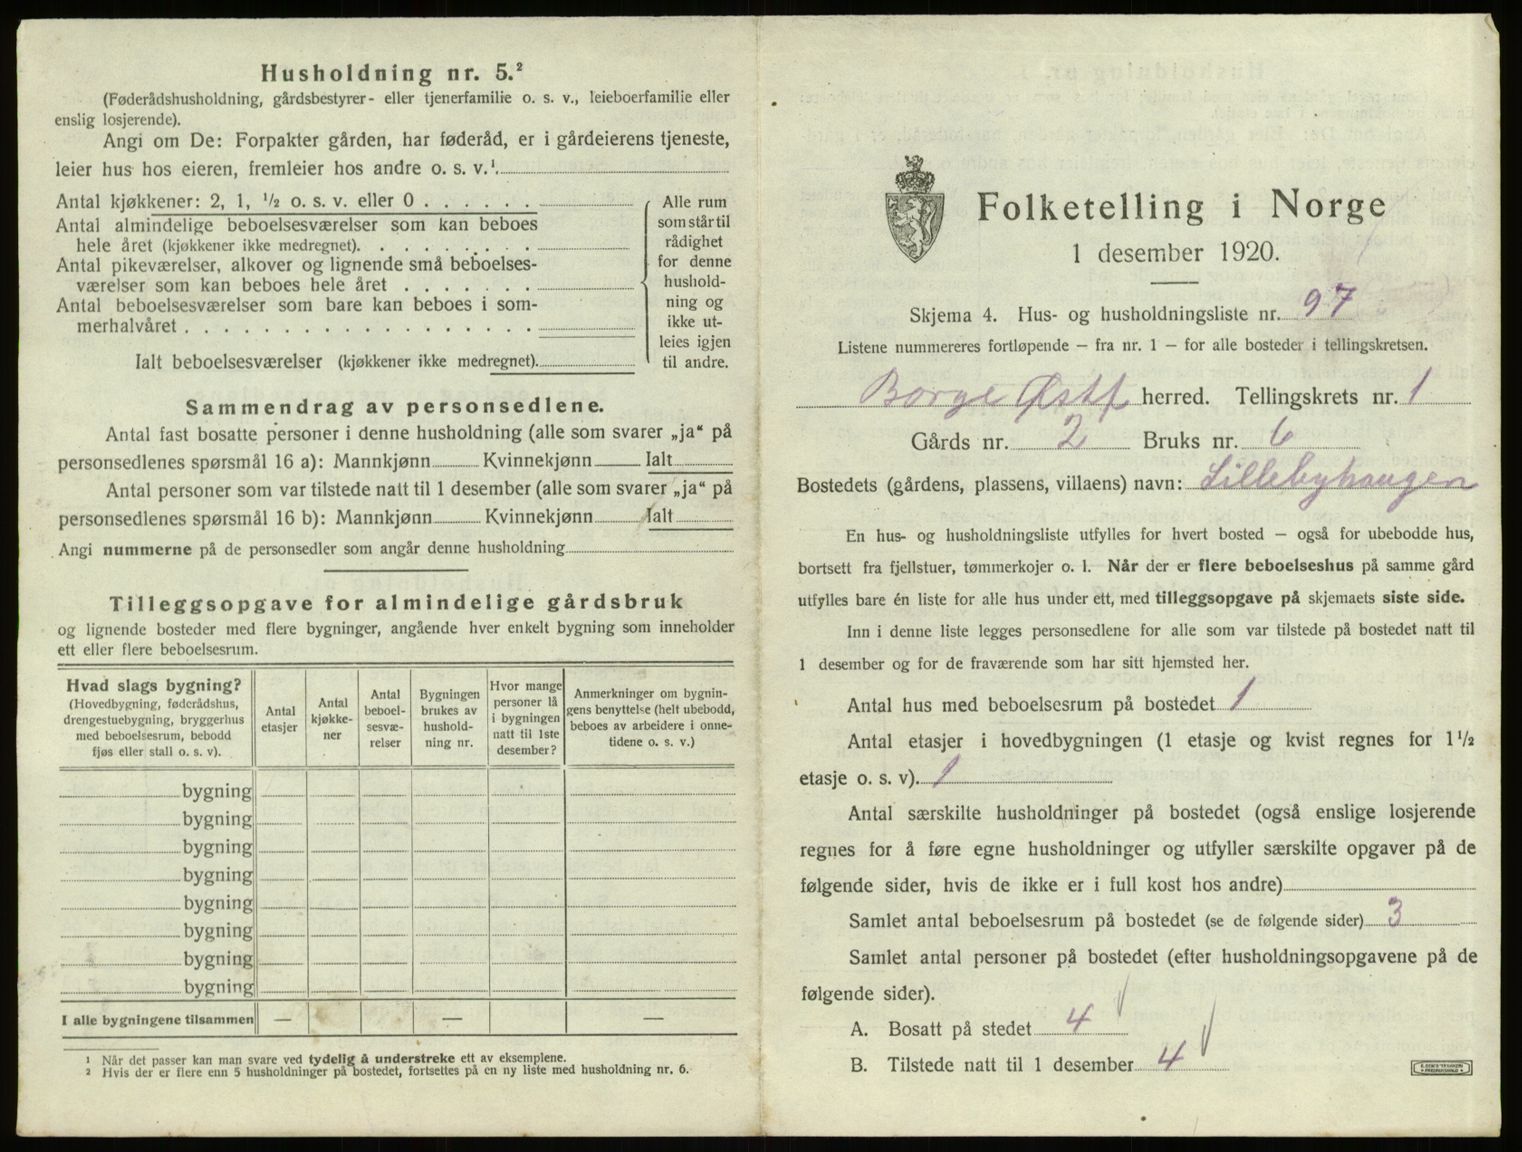 Husholdning nr. 5.²
(Føderådshusholdning, gårdsbestyrer- eller tjenerfamilie o. s. v., leieboerfamilie eller
enslig losjerende).
Angi om De: Forpakter gården, har føderåd, er i gårdeierens tjeneste,
leier hus hos eieren, fremleier hos andre o. s. v.¹
Antal kjøkkener: 2, 1, ½ o. s. v. eller 0 . . . . . .
Antal almindelige beboelsesværelser som kan beboes
hele året (kjøkkener ikke medregnet). . . . . . . . .
Antal pikeværelser, alkover og lignende små beboelses-
værelser som kan beboes hele året . . . . . . .
Antal beboelsesværelser som bare kan beboes i som-
merhalvåret . . . . . . . . . . . . . . . . . .
Ialt beboelsesværelser (kjøkkener ikke medregnet).
Alle rum
som står til
rådighet
for denne
hushold-
ning og
ikke ut-
leies igjen
til andre.
Sammendrag av personsedlene.
Antal fast bosatte personer i denne husholdning (alle som svarer „ja“ på
personsedlenes spørsmål 16 a): Mannkjønn Kvinnekjønn Ialt
Antal personer som var tilstede natt til 1 desember (alle som svarer „ja“ på
personsedlenes spørsmål 16 b): Mannkjønn Kvinnekjønn Ialt
Angi nummerne på de personsedler som angår denne husholdning
Tilleggsopgave for almindelige gårdsbruk
og lignende bosteder med flere bygninger, angående hver enkelt bygning som inneholder
ett eller flere beboelsesrum.
Hvad slags bygning?
(Hovedbygning, føderådshus,
drengestuebygning, bryggerhus
med beboelsesrum, bebodd
fjøs eller stall o. s. v).
Antal
etasjer
Antal
kjøkke-
ner
Antal
beboel-
sesvæ-
relser
Bygningen
brukes av
hushold-
ning nr.
Hvor mange
personer lå
i bygningen
natt til 1ste
desember?
Anmerkninger om bygnin-
gens benyttelse (helt ubebodd,
beboes av arbeidere i onne-
tidene o. s. v.)
bygning
bygning
bygning
bygning
bygning
bygning
bygning
bygning
I alle bygningene tilsammen — — —
¹ Når det passer kan man svare ved tydelig å understreke ett av eksemplene.
² Hvis der er flere enn 5 husholdninger på bostedet, fortsettes på en ny liste med husholdning nr. 6.
Folketelling i Norge
1 desember 1920.
Skjema 4. Hus- og husholdningsliste nr. 97
Listene nummereres fortløpende — fra nr. 1 — for alle bosteder i tellingskretsen.
Borge Østf herred. Tellingskrets nr. 1
Gårds nr. 2 Bruks nr. 6
Bostedets (gårdens, plassens, villaens) navn: Lillebyhaugen
En hus- og husholdningsliste utfylles for hvert bosted — også for ubebodde hus,
bortsett fra fjellstuer, tømmerkojer o. l. Når der er flere beboelseshus på samme gård
utfylles bare én liste for alle hus under ett, med tilleggsopgave på skjemaets siste side.
Inn i denne liste legges personsedlene for alle som var tilstede på bostedet natt til
1 desember og for de fraværende som har sitt hjemsted her.
Antal hus med beboelsesrum på bostedet 1
Antal etasjer i hovedbygningen (1 etasje og kvist regnes for 1½
etasje o. s. v). 1
Antal særskilte husholdninger på bostedet (også enslige losjerende
regnes for å føre egne husholdninger og utfyller særskilte opgaver på de
følgende sider, hvis de ikke er i full kost hos andre)
Samlet antal beboelsesrum på bostedet (se de følgende sider) 3
Samlet antal personer på bostedet (efter husholdningsopgavene på de
følgende sider).
A. Bosatt på stedet 4
B. Tilstede natt til 1 desember 4